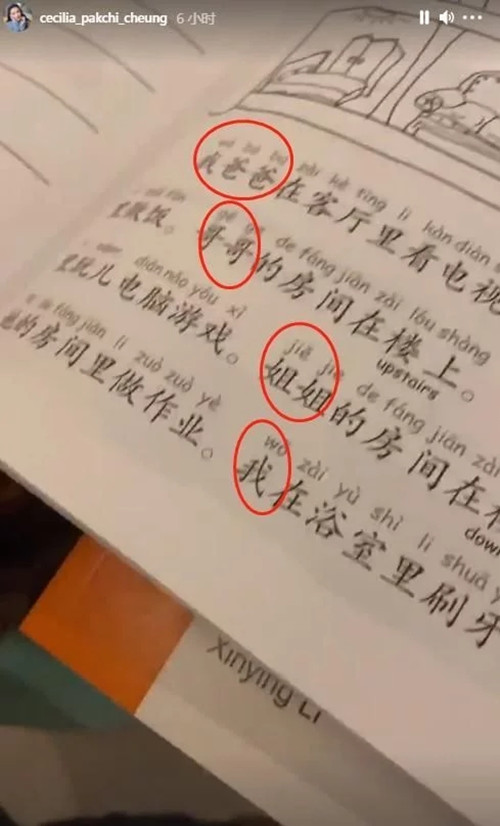 cecilia_pakchi_cheung 6 小时
kè tīng lǐ kàn diàn
我爸爸在客厅里看电视
gē de fáng jiān zài lóu shàng
饭。哥哥的房间在楼上。
upstairs
diàn nǎo yóu xì jiě jie de fáng jiān zài
玩儿电脑游戏。姐姐的房间在
fáng jiān lǐ zuò zuò yè wǒ zài yù shì lǐ shuā
的房间里做作业。我在浴室里刷牙
Xinying Li